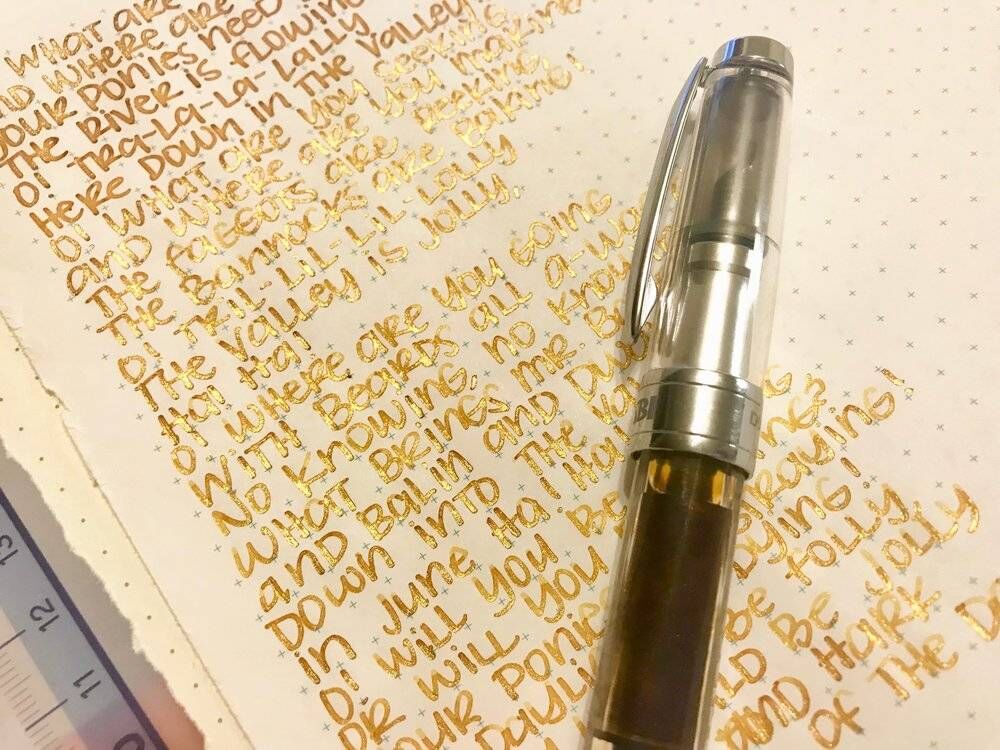 WHAT ARE
ND WHERE ARE
OUR PONIES NEED
THE RIVER IS FLOWING
O! TRA-LA-LA-LALLY
HERE DOWN IN THE VALLEY!
O! WHAT ARE YOU SEEKING
AND WHERE ARE YOU MAKING
THE FAGGOTS ARE REEKING
THE BANNOCKS ARE BAKING!
O! TRIL-LIL-LIL-LOLLY
THE VALLEY IS JOLLY,
HA! HA!
O! WHERE ARE YOU GOING
WITH BEARDS ALL A-WA
NO KNOWING, NO KNOW
WHAT BRINGS MR. BA
AND BALIN AND DWA
DOWN INTO THE VAL
IN JUNE HA! HA!
O! WILL YOU BE
OR WILL YOU RAYING!
OUR PONIES DYING!
DAYLI LD BE FOLLY
BE JOLLY
AND HARK
OF THE
13 12 11